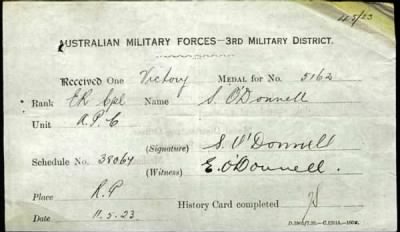 4575/23
AUSTRALIAN MILITARY FORCES—3RD MILITARY DISTRICT.
Received One Victory MEDAL for No. 5162
Rank ER Cpl Name S. O'Donnell
Unit A.P.C
(Signature) S. O'Donnell
Schedule No. 38064 (Witness) E. O'Donnell.
Place R.P
History Card completed
Date 11.5.23